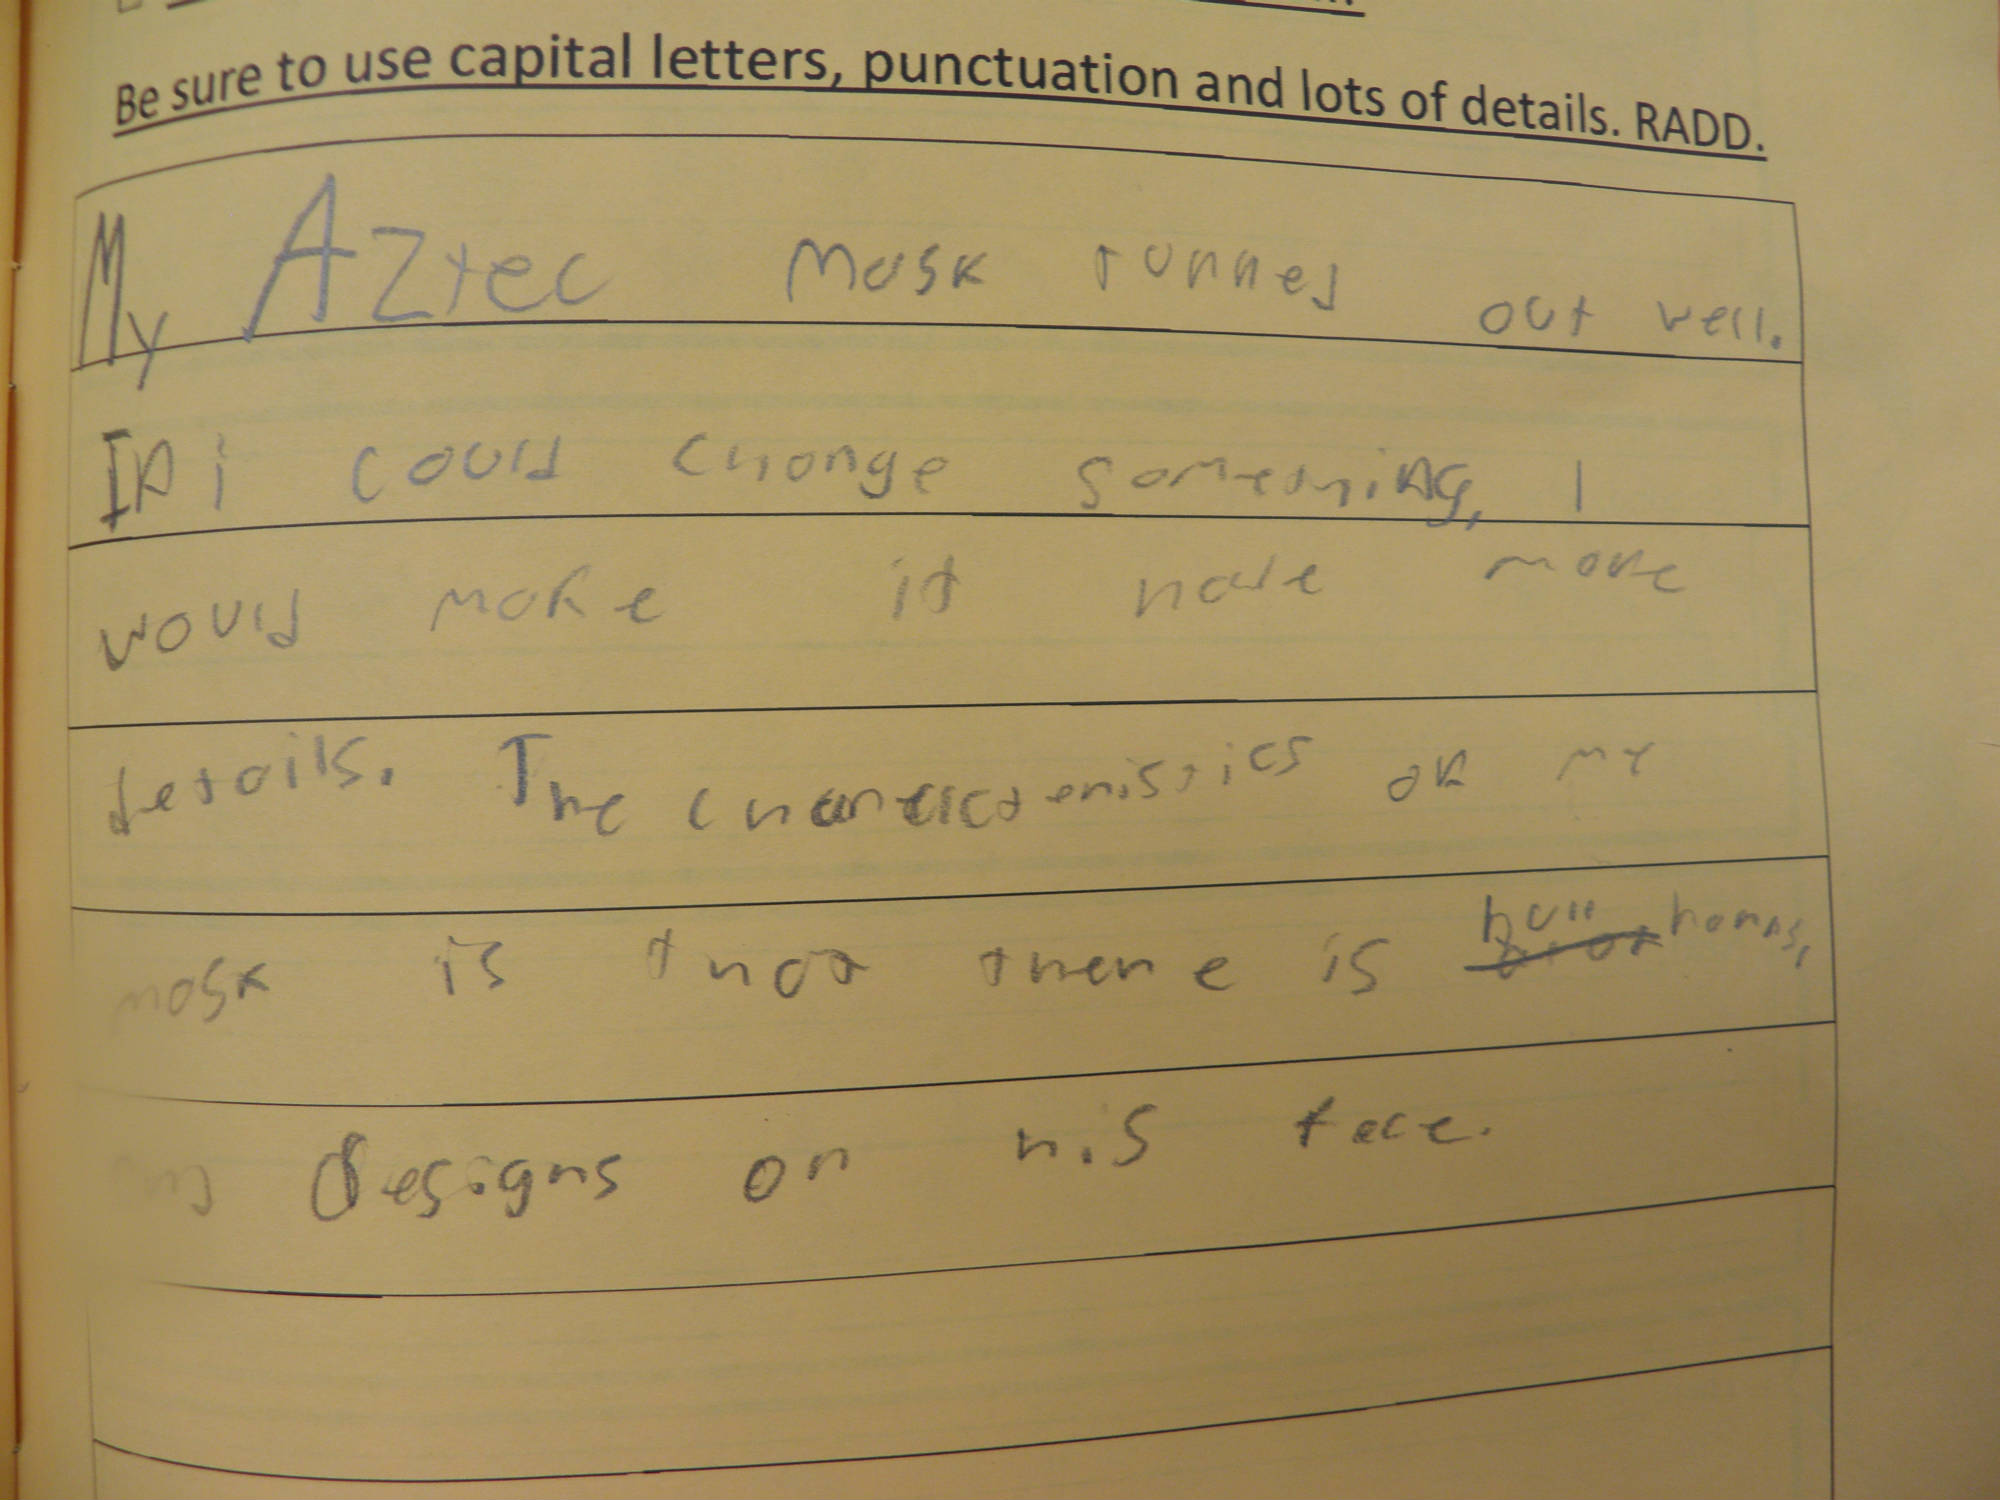 Be sure to use capital letters, punctuation and lots of details. RADD.
My Aztec mask turned out well.
If i could change something, I
would make it have more
details. The charactoristics of my
mask is that there is bull horns,
designs on his face.